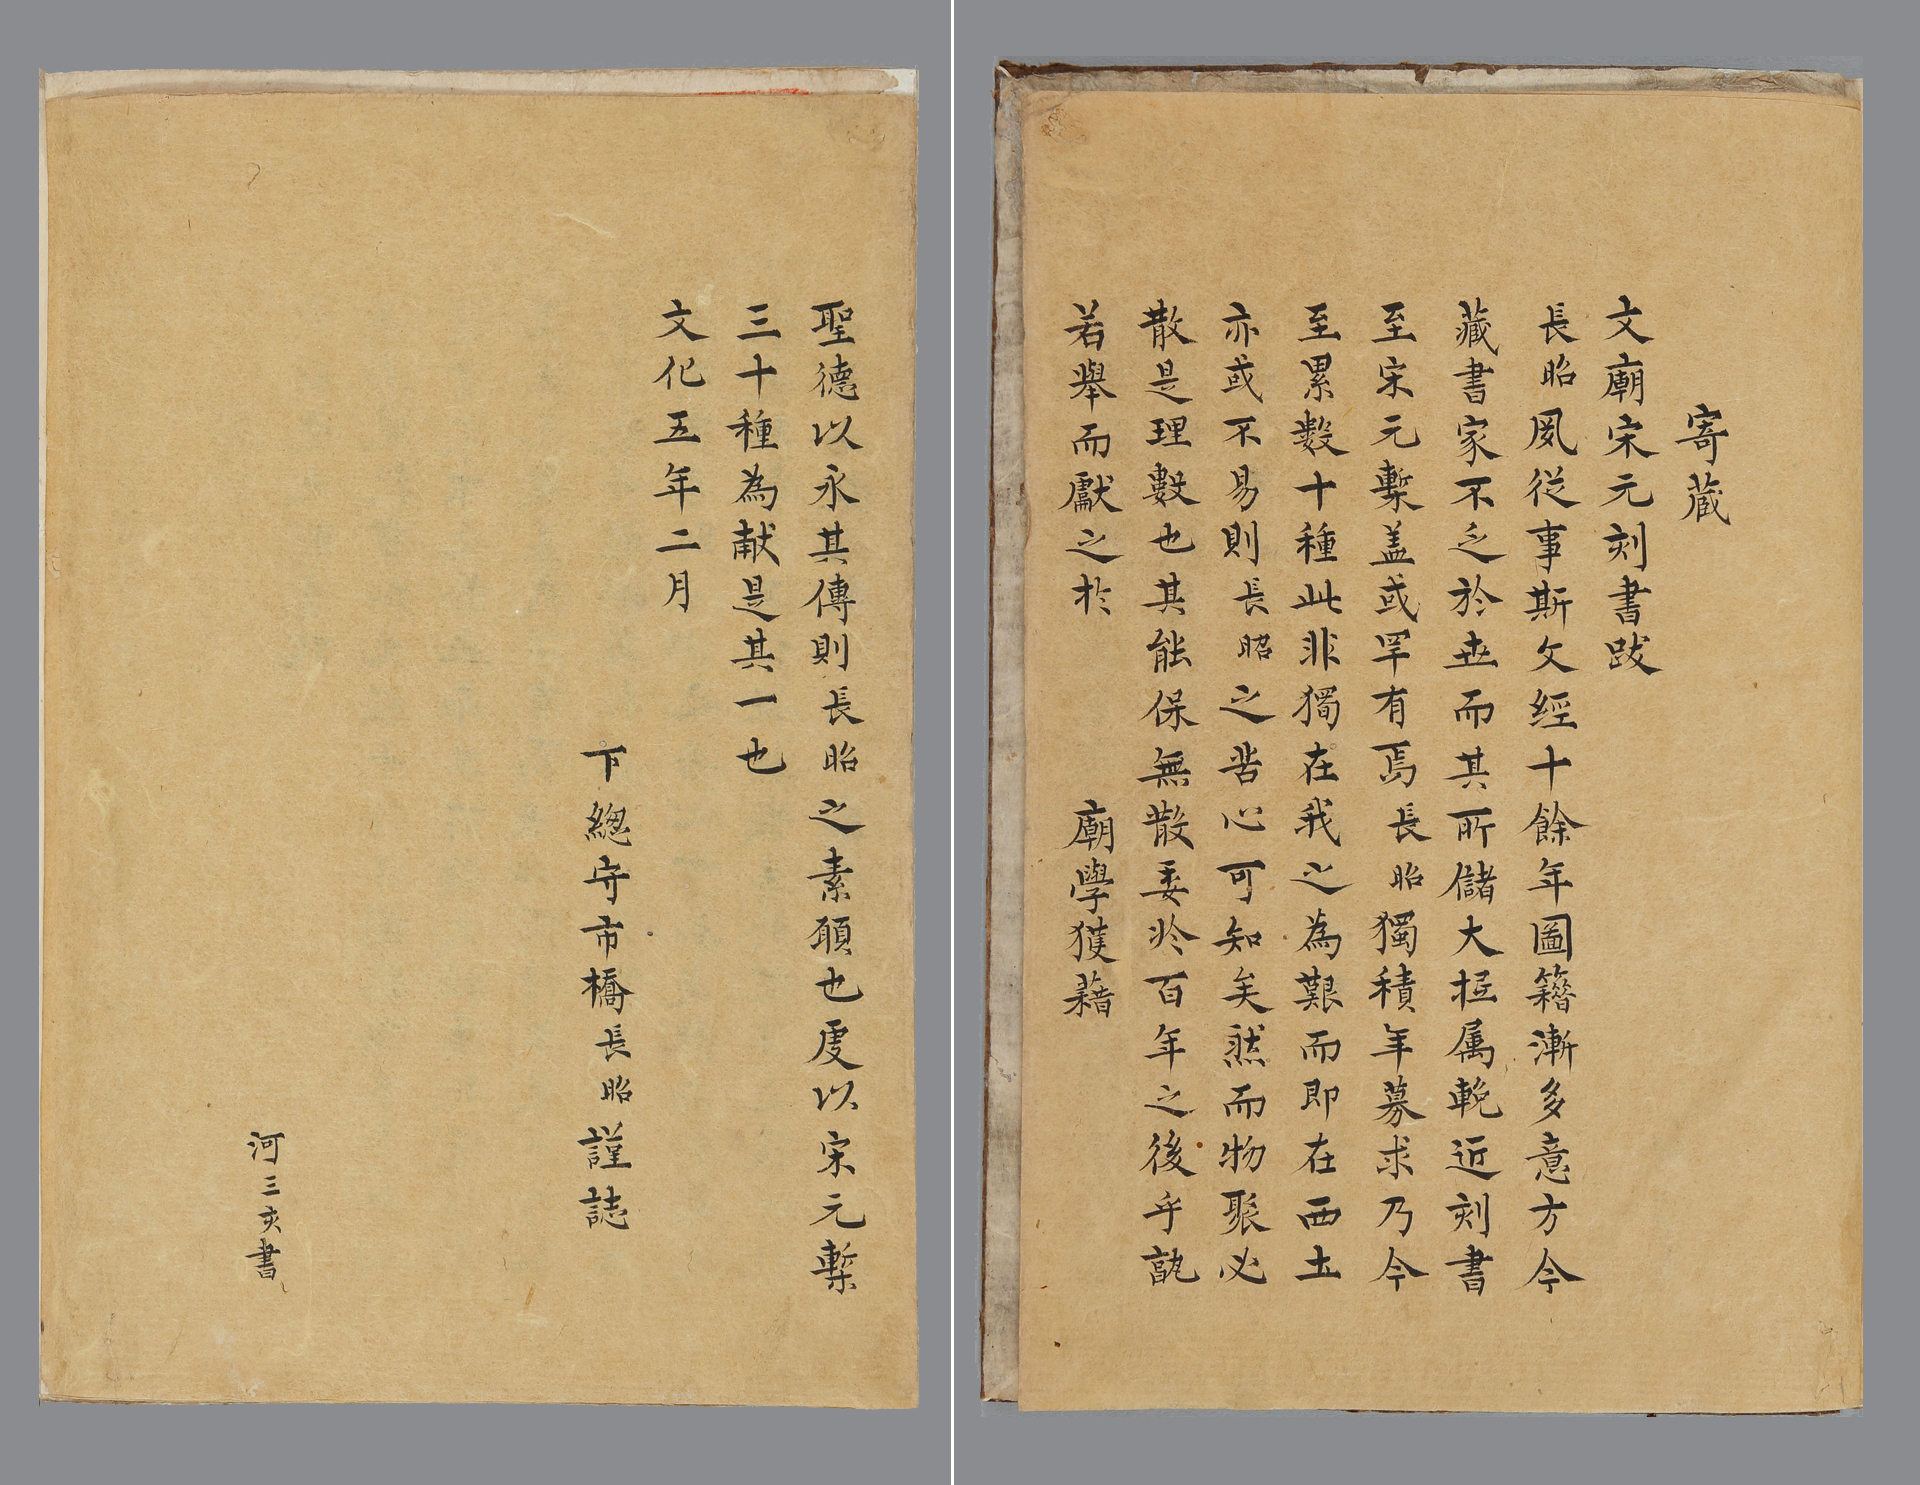 寄蔵
文廟宋元刻書跋
長昭夙從事斯文經十餘年圖籍漸多意方今
藏書家不乏於世而其所儲大抵属輓近刻書
至宋元槧盖或罕有焉長昭獨積年募求乃今
至累數十種此非獨在我之為艱而即在西土
亦或不易則長昭之苦心可知矣然而物聚必
散是理數也其能保無散委於百年之後乎孰
若舉而獻之於 廟學獲藉
聖德以永其傳則長昭之素願也虔以宋元槧
三十種為献是其一也
文化五年二月
下總守市橋長昭謹誌
河三亥書